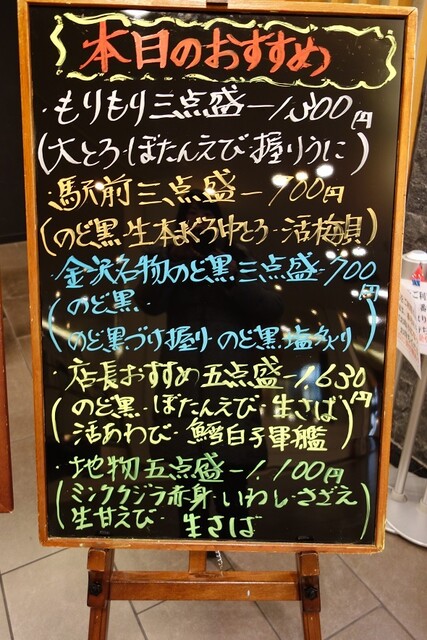 本日のおすすめ
・もりもり三点盛ー1,300円
(大とろ・ぼたんえび・握りうに)
・駅前三点盛ー700円
(のど黒・生本まぐろ中とろ・活梅貝)
・金沢名物のど黒三点盛・700円
(のど黒・
のど黒づけ握り・のど黒塩炙り)
・店長おすすめ五点盛ー1,630円
(のど黒・ぼたんえび・生さば
活あわび・鱈白子軍艦)
・地物五点盛ー1,100円
(ミンククジラ赤身・いわし・さざえ
生甘えび・生さば)